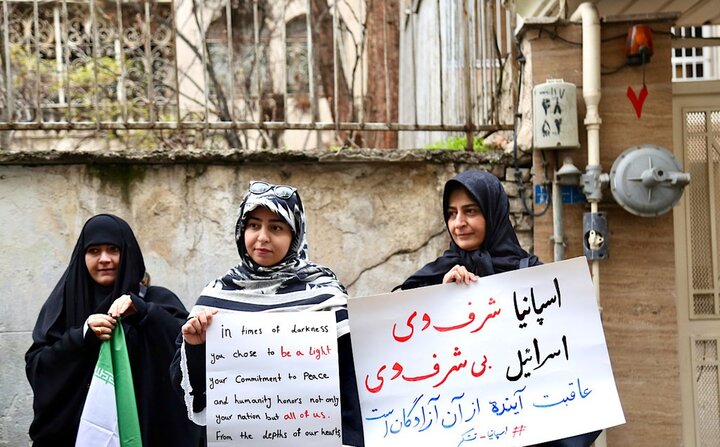 in times of darkness
you chose to be a light
your commitment to Peace
and humanity honors not only
your nation but all of us.
From the depths of our hearts
اسپانیا شرف وی
اسرائیل بی شرف وی
عاقبت آینده از آن آزادگان است
#اسپانیا-تشکر